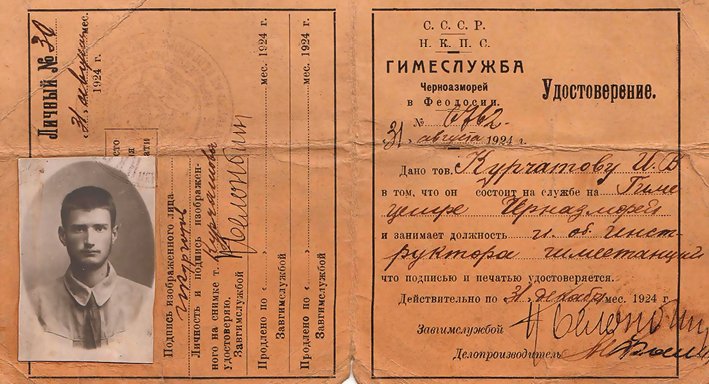 Личный № 30
31 августа мес.
1924 г.
Подпись изображенного лица
Личность и подпись изображен-
ного на снимке т. Курчатова
удостоверяю.
Завгимслужбой
Продлено по „ “ мес. 1924 г.
Завгимслужбой
Продлено по „ “ мес. 1924 г.
Завгимслужбой
С. С. С. Р.
Н. К. П. С.
ГИМЕСЛУЖБА
Черноазморей
в Феодосии.
Удостоверение.
№
31 августа 1924 г.
Дано тов. Курчатову И. В
в том, что он состоит на службе на Гиме
центре Черназморей
и занимает должность и. об. Инст-
руктора гиместанций
что подписью и печатью удостоверяется.
Действительно по 31 декабря мес. 1924 г.
Завгимслужбой
Делопроизводитель